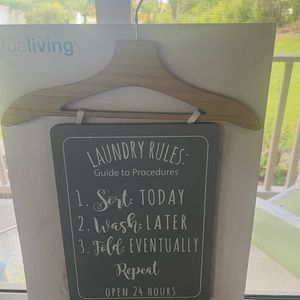 trueliving
LAUNDRY RULES:
Guide to Procedures
1. Sort: TODAY
2. Wash: LATER
3. Fold: EVENTUALLY
Repeat
OPEN 24 HOURS